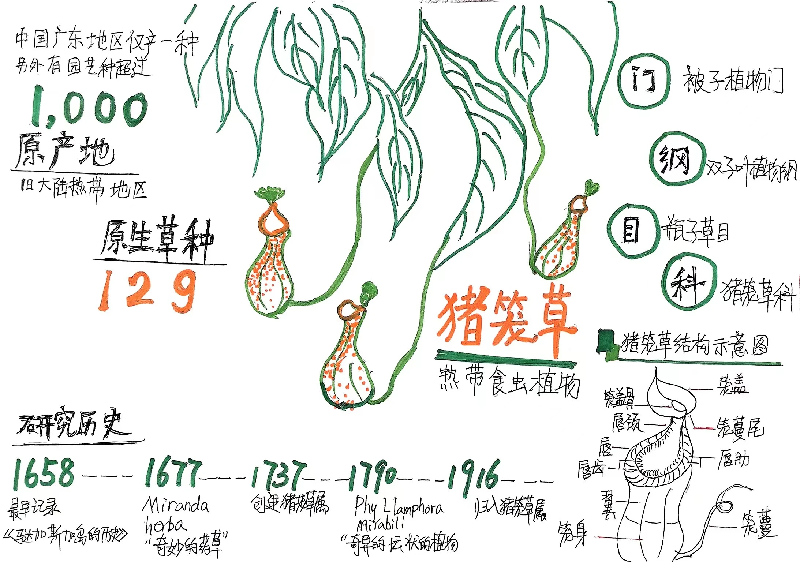 中国广东地区仅产一种
另外有园艺种超过
1,000
原产地
旧大陆热带地区
原生草种
129
门
被子植物门
纲
双子叶植物纲
目
瓶子草目
科
猪笼草科
猪笼草
热带食虫植物
猪笼草结构示意图
笼盖
笼蔓尾
唇肋
笼蔓
唇
唇齿
翼
笼身
研究历史
1658
最早记录
《马达加斯加岛的历史》
1677
Miranda
herba
"奇妙的药草"
1737
创建猪笼草属
1790
Phyllamphora
mirabili
"奇异的坛状的植物
1916
归入猪笼草属